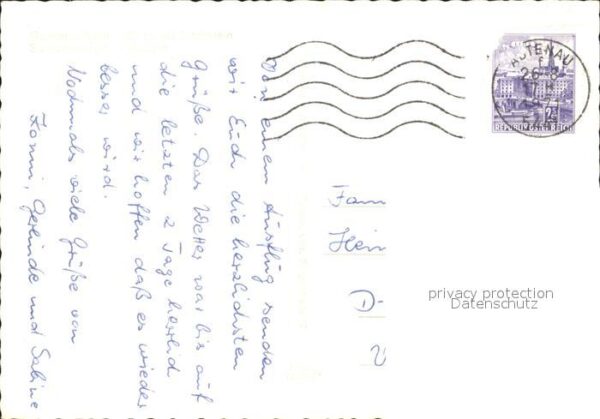 Von einem Ausflug senden
wir Euch die herzlichsten
Grüße. Das Wetter war bis auf
die letzten 2 Tage herrlich
und wir hoffen daß es wieder
besser wird.
Nochmals viele Grüße von
Conni, Gerlinde und Sabine
ALTENAU
26.-8.
REPUBLIK ÖSTERREICH
Fam
Hein
D-
privacy protection
Datenschutz